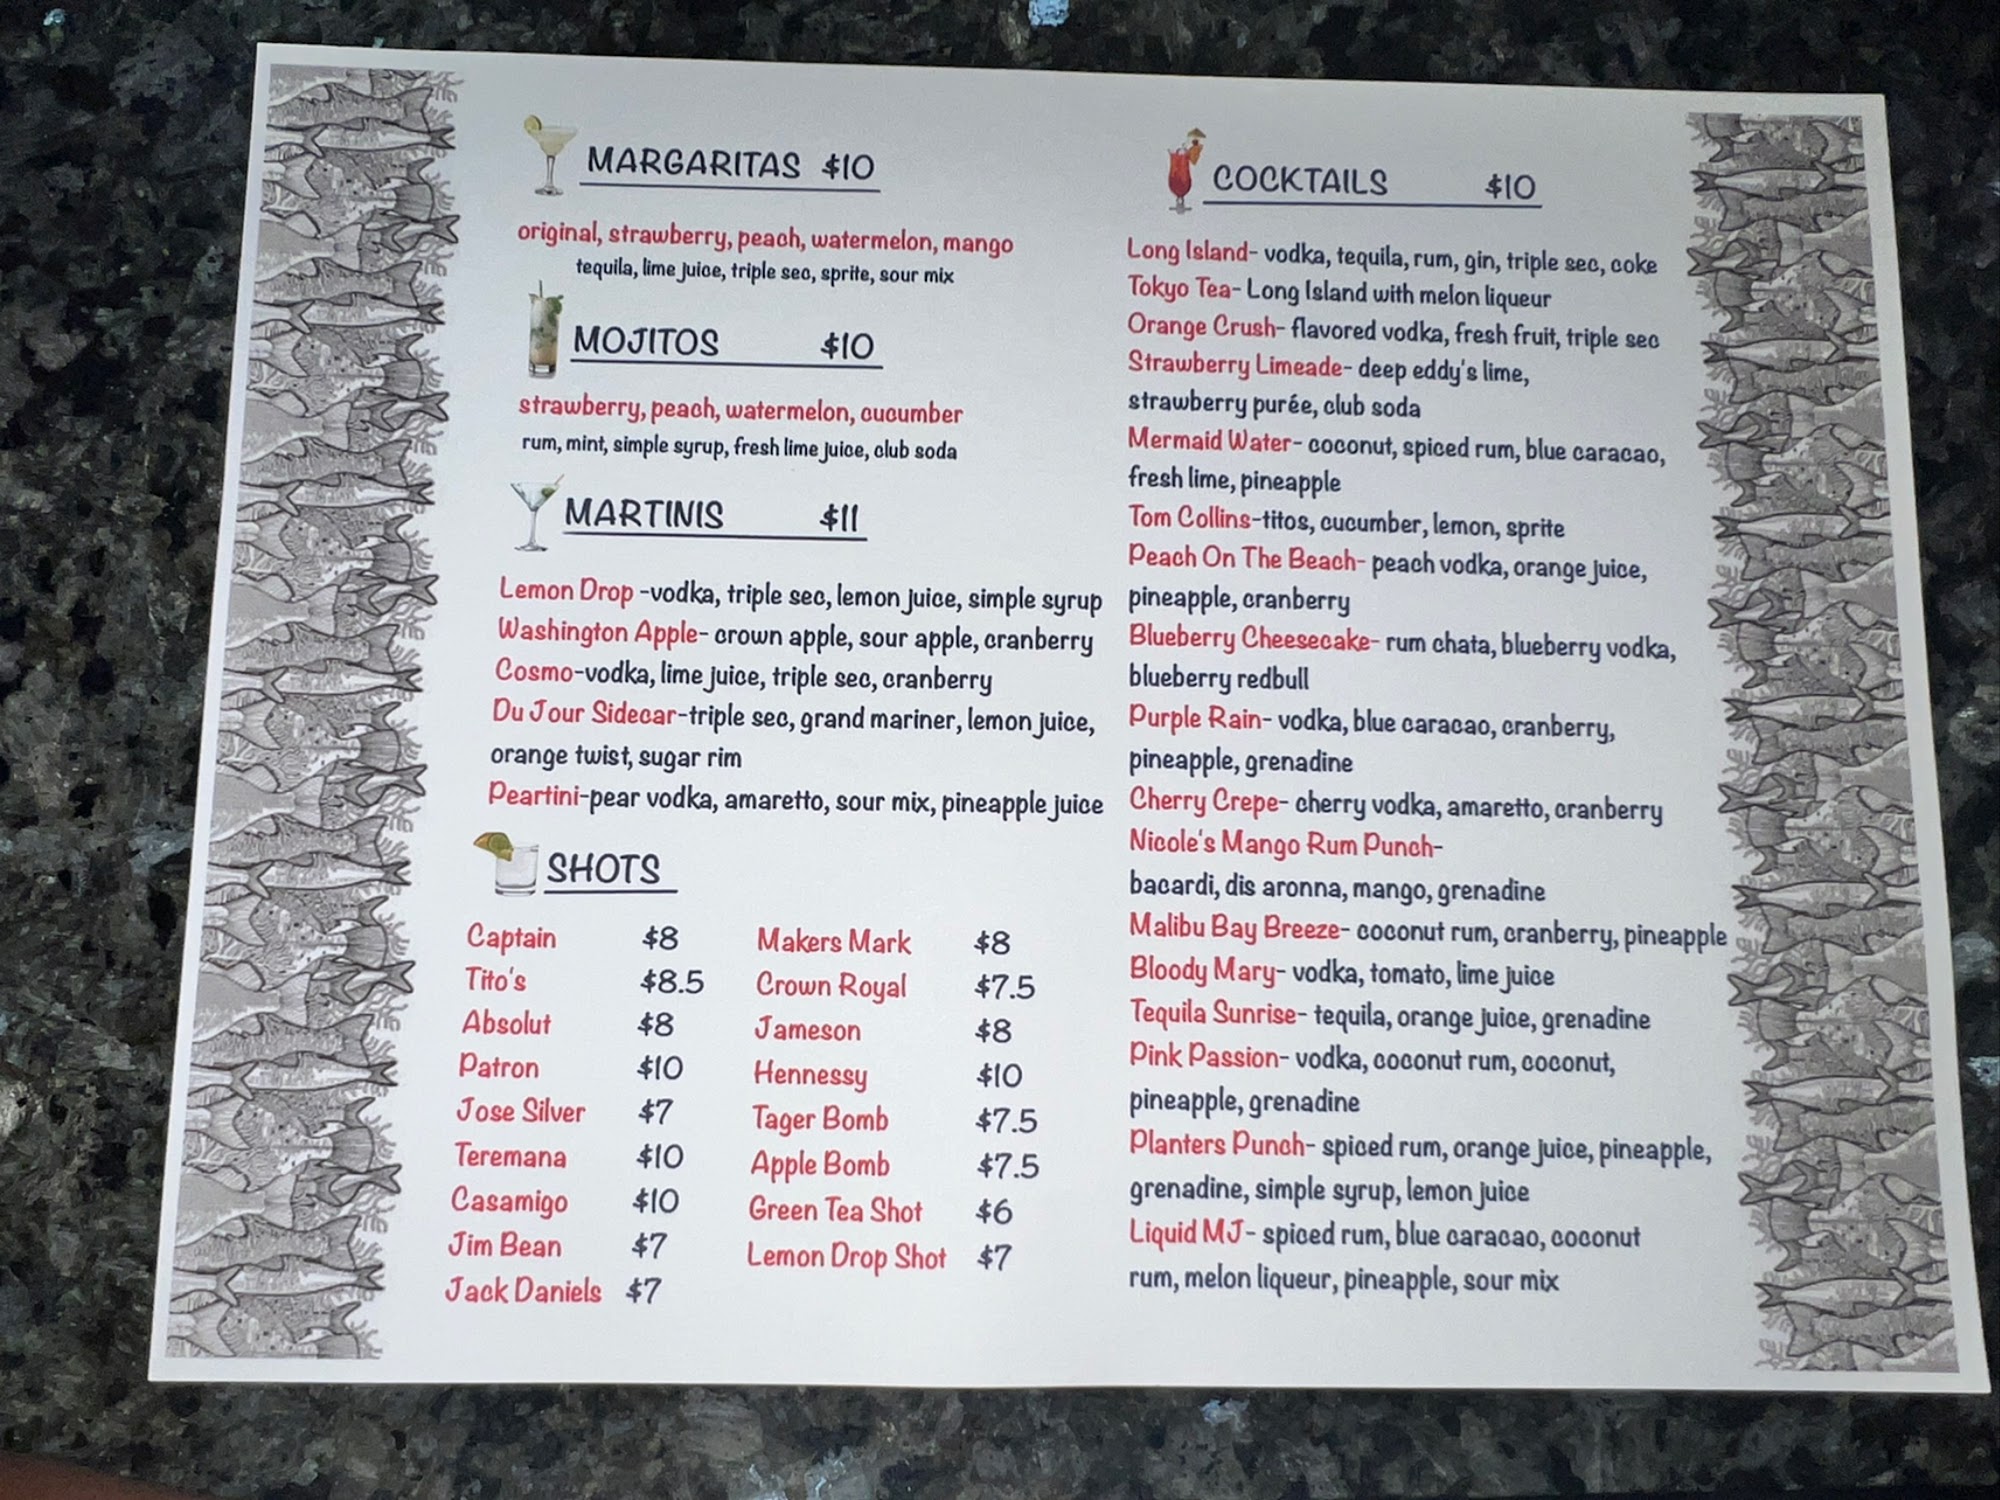 MARGARITAS $10
original, strawberry, peach, watermelon, mango
tequila, lime juice, triple sec, sprite, sour mix
MOJITOS $10
strawberry, peach, watermelon, cucumber
rum, mint, simple syrup, fresh lime juice, club soda
MARTINIS $11
Lemon Drop -vodka, triple sec, lemon juice, simple syrup
Washington Apple- crown apple, sour apple, cranberry
Cosmo-vodka, lime juice, triple sec, cranberry
Du Jour Sidecar-triple sec, grand mariner, lemon juice,
orange twist, sugar rim
Peartini-pear vodka, amaretto, sour mix, pineapple juice
SHOTS
Captain $8
Tito's $8.5
Absolut $8
Patron $10
Jose Silver $7
Teremana $10
Casamigo $10
Jim Bean $7
Jack Daniels $7
Makers Mark $8
Crown Royal $7.5
Jameson $8
Hennessy $10
Tager Bomb $7.5
Apple Bomb $7.5
Green Tea Shot $6
Lemon Drop Shot $7
COCKTAILS $10
Long Island- vodka, tequila, rum, gin, triple sec, coke
Tokyo Tea- Long Island with melon liqueur
Orange Crush- flavored vodka, fresh fruit, triple sec
Strawberry Limeade- deep eddy's lime,
strawberry purée, club soda
Mermaid Water- coconut, spiced rum, blue caracao,
fresh lime, pineapple
Tom Collins-titos, cucumber, lemon, sprite
Peach On The Beach- peach vodka, orange juice,
pineapple, cranberry
Blueberry Cheesecake- rum chata, blueberry vodka,
blueberry redbull
Purple Rain- vodka, blue caracao, cranberry,
pineapple, grenadine
Cherry Crepe- cherry vodka, amaretto, cranberry
Nicole's Mango Rum Punch-
bacardi, dis aronna, mango, grenadine
Malibu Bay Breeze- coconut rum, cranberry, pineapple
Bloody Mary- vodka, tomato, lime juice
Tequila Sunrise- tequila, orange juice, grenadine
Pink Passion- vodka, coconut rum, coconut,
pineapple, grenadine
Planters Punch- spiced rum, orange juice, pineapple,
grenadine, simple syrup, lemon juice
Liquid MJ- spiced rum, blue caracao, coconut
rum, melon liqueur, pineapple, sour mix